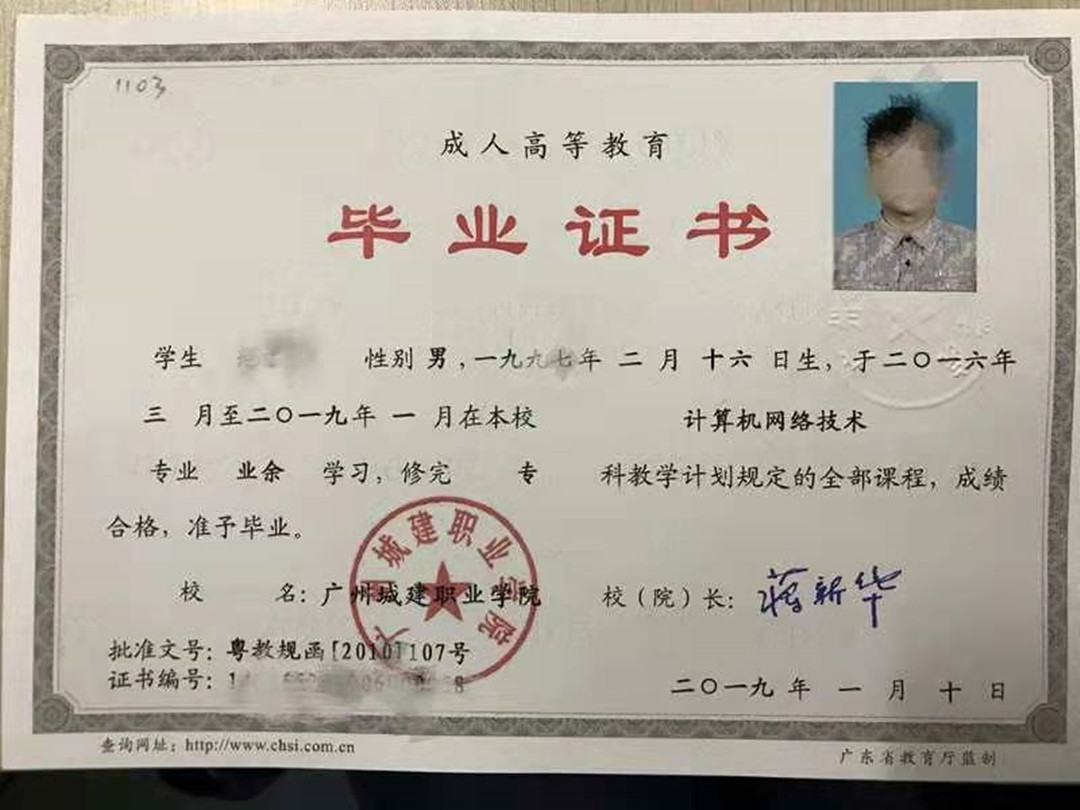 1103
成人高等教育
毕业证书
学生 性别 男，一九九七年 二 月 十六 日生，于二〇一六年
三 月至二〇一九年 一 月在本校 计算机网络技术
专业 业余 学习，修完 专 科教学计划规定的全部课程，成绩
合格，准予毕业。
城建职业学院
校 名：广州城建职业学院 校（院）长：蒋新华
批准文号：粤教规函[2010]107号
证书编号：
二〇一九 年 一 月 十 日
查询网址：http://www.chsi.com.cn
广东省教育厅监制